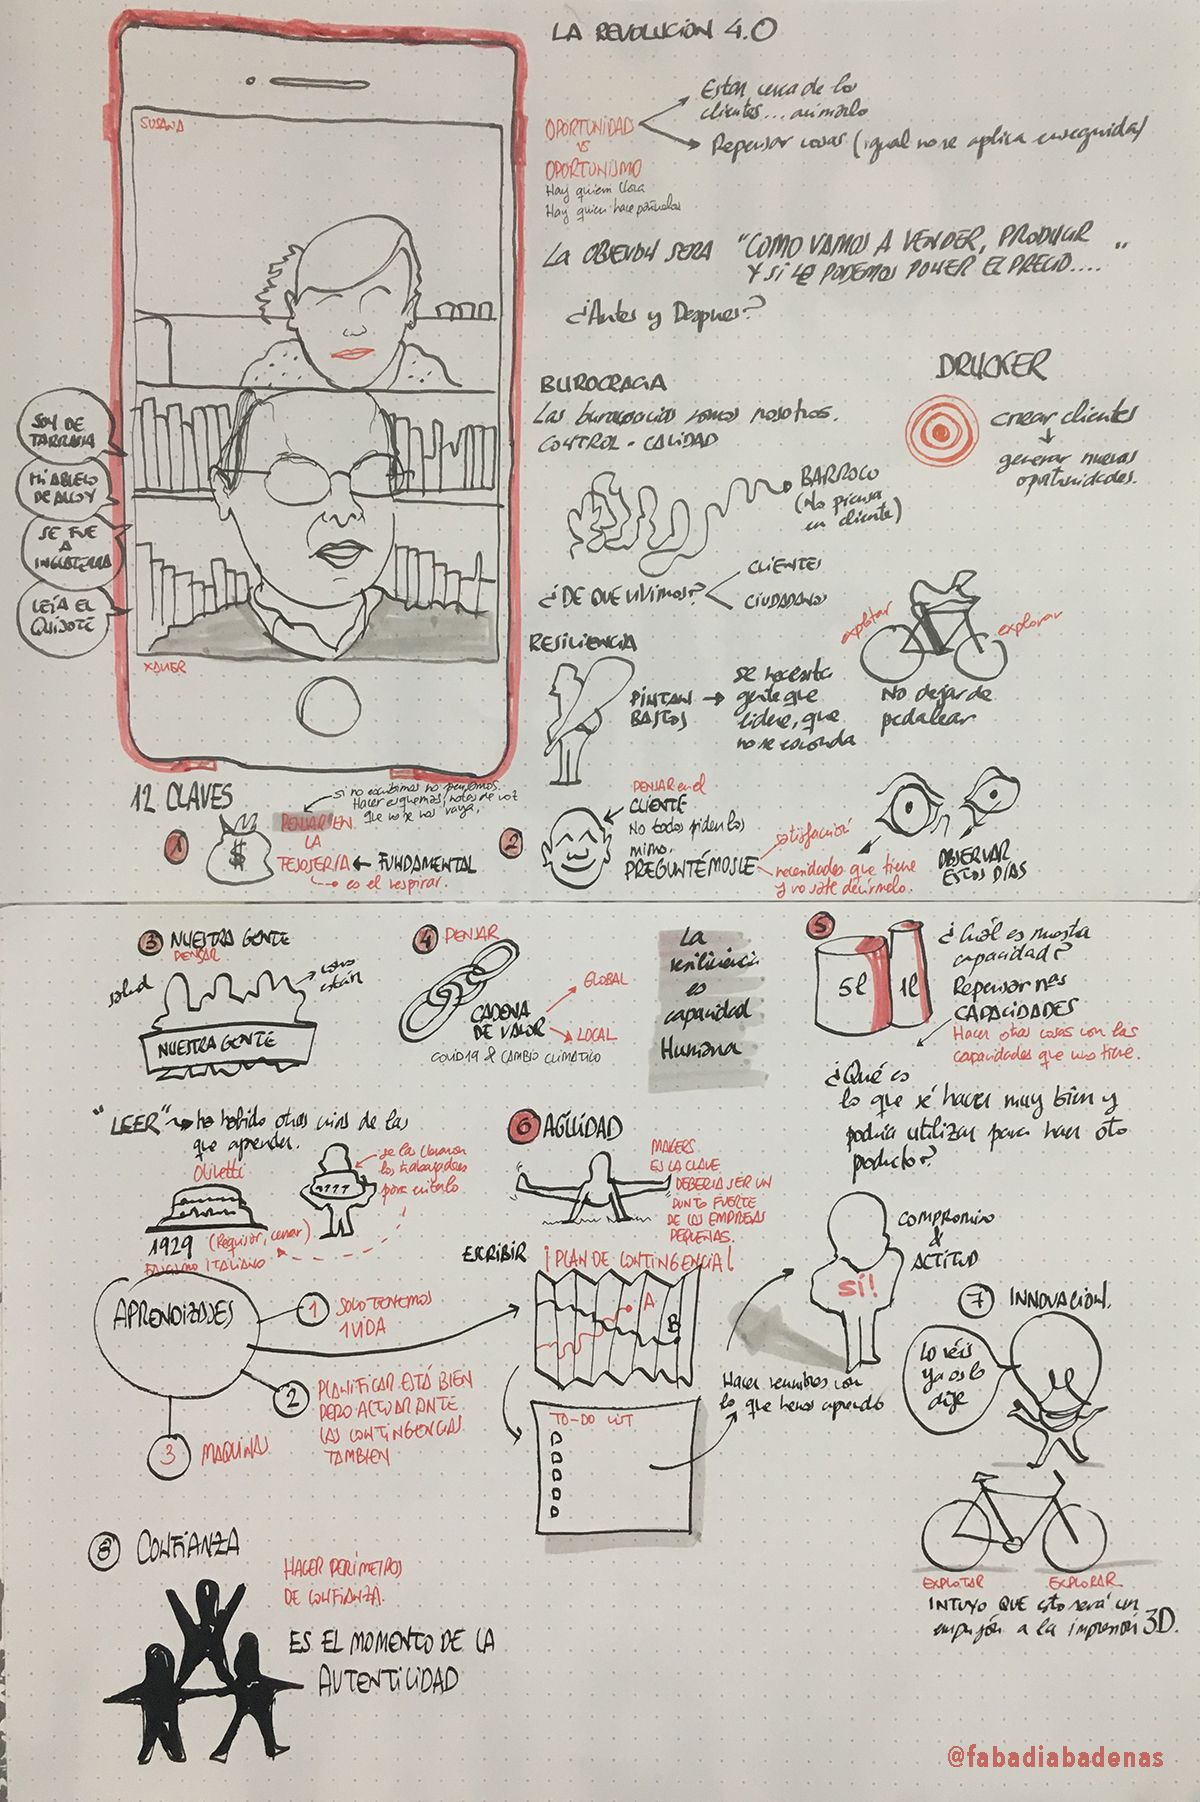 LA REVOLUCIÓN 4.0
SUSANA
OPORTUNIDAD
VS
OPORTUNISMO
Hay quien llora
Hay quien hace pañuelos
Estar cerca de los
clientes... animarlo
Repensar cosas (igual no se aplica enseguida)
"COMO VAMOS A VENDER, PRODUCIR
Y SI LE PODEMOS PONER EL PRECIO...."
¿Antes y Despues?
BUROCRACIA
Las burocracias somos nosotros.
CONTROL - CALIDAD
DRUCKER
crear clientes
generar nuevas
oportunidades.
BARROCO
(No piensa
en cliente)
SOY DE
TARRASA
MI ABUELO
DE ALCOY
SE FUE
A
INGLATERRA
LEÍA EL
QUIJOTE
XAVIER
¿DE QUE VIVIMOS?
CLIENTES
CIUDADANOS
RESILIENCIA
PINTAN
BASTOS
se necesita
gente que
lidere, que
no se esconda
explotar
explorar
No dejar de
pedalear
12 CLAVES
1
si no escribimos no pensamos.
Hacer esquemas, notas de voz
que no se nos vaya.
PENSAR EN
LA
TESORERÍA
FUNDAMENTAL
es el respirar.
2
PENSAR en el
CLIENTE
No todos piden lo
mismo.
PREGUNTÉMOSLE
satisfacción
necesidades que tiene
y no sabe decírmelo.
OBSERVAR
ESTOS DÍAS
3 NUESTRA GENTE
PENSAR
salud
como
están
NUESTRA GENTE
4 PENSAR
CADENA
DE VALOR
GLOBAL
LOCAL
COVID19 & CAMBIO CLIMATICO
La
resiliencia
es
capacidad
Humana
5
5l
1l
¿Cuál es nuestra
capacidad?
Repensar nas
CAPACIDADES
Hacer otras cosas con las
capacidades que uno tiene.
¿Qué es
lo que sé hacer muy bien y
podría utilizar para hacer oto
producto?
"LEER" ha habido otras crisis de las
que aprender.
Olivetti
1929
(Requisar, cerrar)
FASCISMO ITALIANO
se la llevaron
los trabajadores
para evitarlo
6 AGILIDAD
MAKERS
ES LA CLAVE
DEBERIA SER UN
PUNTO FUERTE
DE LAS EMPRESAS
PEQUEÑAS.
ESCRIBIR
¡PLAN DE CONTINGENCIA!
A
B
APRENDIZAJES
1 SOLO TENEMOS
1 VIDA
2 PLANIFICAR ESTÁ BIEN
PERO ACTUAR ANTE
LAS CONTINGENCIAS
TAMBIEN
3 MAQUINAS
TO-DO LIST
Hacer reuniones con
lo que hemos aprendido
SÍ!
COMPROMISO
&
ACTITUD
7 INNOVACION.
Lo véis
ya os lo
dije
EXPLOTAR
EXPLORAR
INTUYO QUE esto será un
empujón a la impresión 3D.
8 CONFIANZA
HACER PERÍMETROS
DE CONFIANZA.
ES EL MOMENTO DE LA
AUTENTICIDAD
@fabadiabadenas